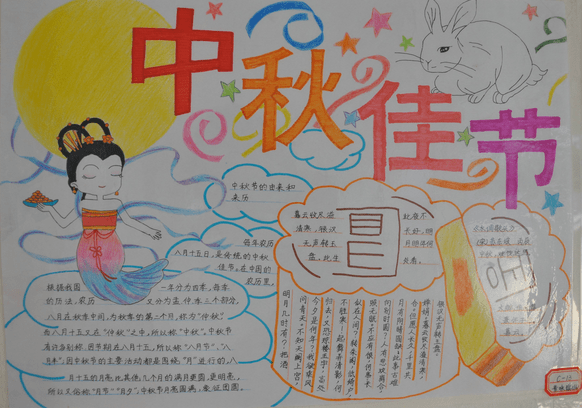 中秋佳节
中秋节的由来和
来历
每年农历
八月十五日,是传统的中秋
佳节,在中国的
农历里,
根据我国
一年分为四季,每季
的历法,农历
又分为孟仲季三个部分,
八月在秋季中间,为秋季的第二个月,称为“仲秋”,
而八月十五又在“仲秋”之中,所以称“中秋”。中秋节
有许多别称:因节期在八月十五,所以称“八月节”、“八
月半”;因中秋节的主要活动都是围绕“月”进行的,
月十五的月亮比其他几个月的满月更圆,更明亮,
所以又俗称“月节”“月夕”;中秋节月亮圆满,象征团圆,
暮云收尽溢
清寒,银汉
无声转玉
盘,此生
此夜不
长好,明
月明年何
处看。
明月几时有?把酒
问青天。不知天上宫阙,
今夕是何年?我欲乘风
归去,又恐琼楼玉宇,高处
不胜寒。起舞弄清影,何
似在人间?转朱阁,低绮户,
照无眠。不应有恨,何事长
向别时圆?人有悲欢离合,
月有阴晴圆缺,此事古难
全。但愿人长久,千里共
婵娟。暮云收尽溢清寒,
银汉无声转玉盘。